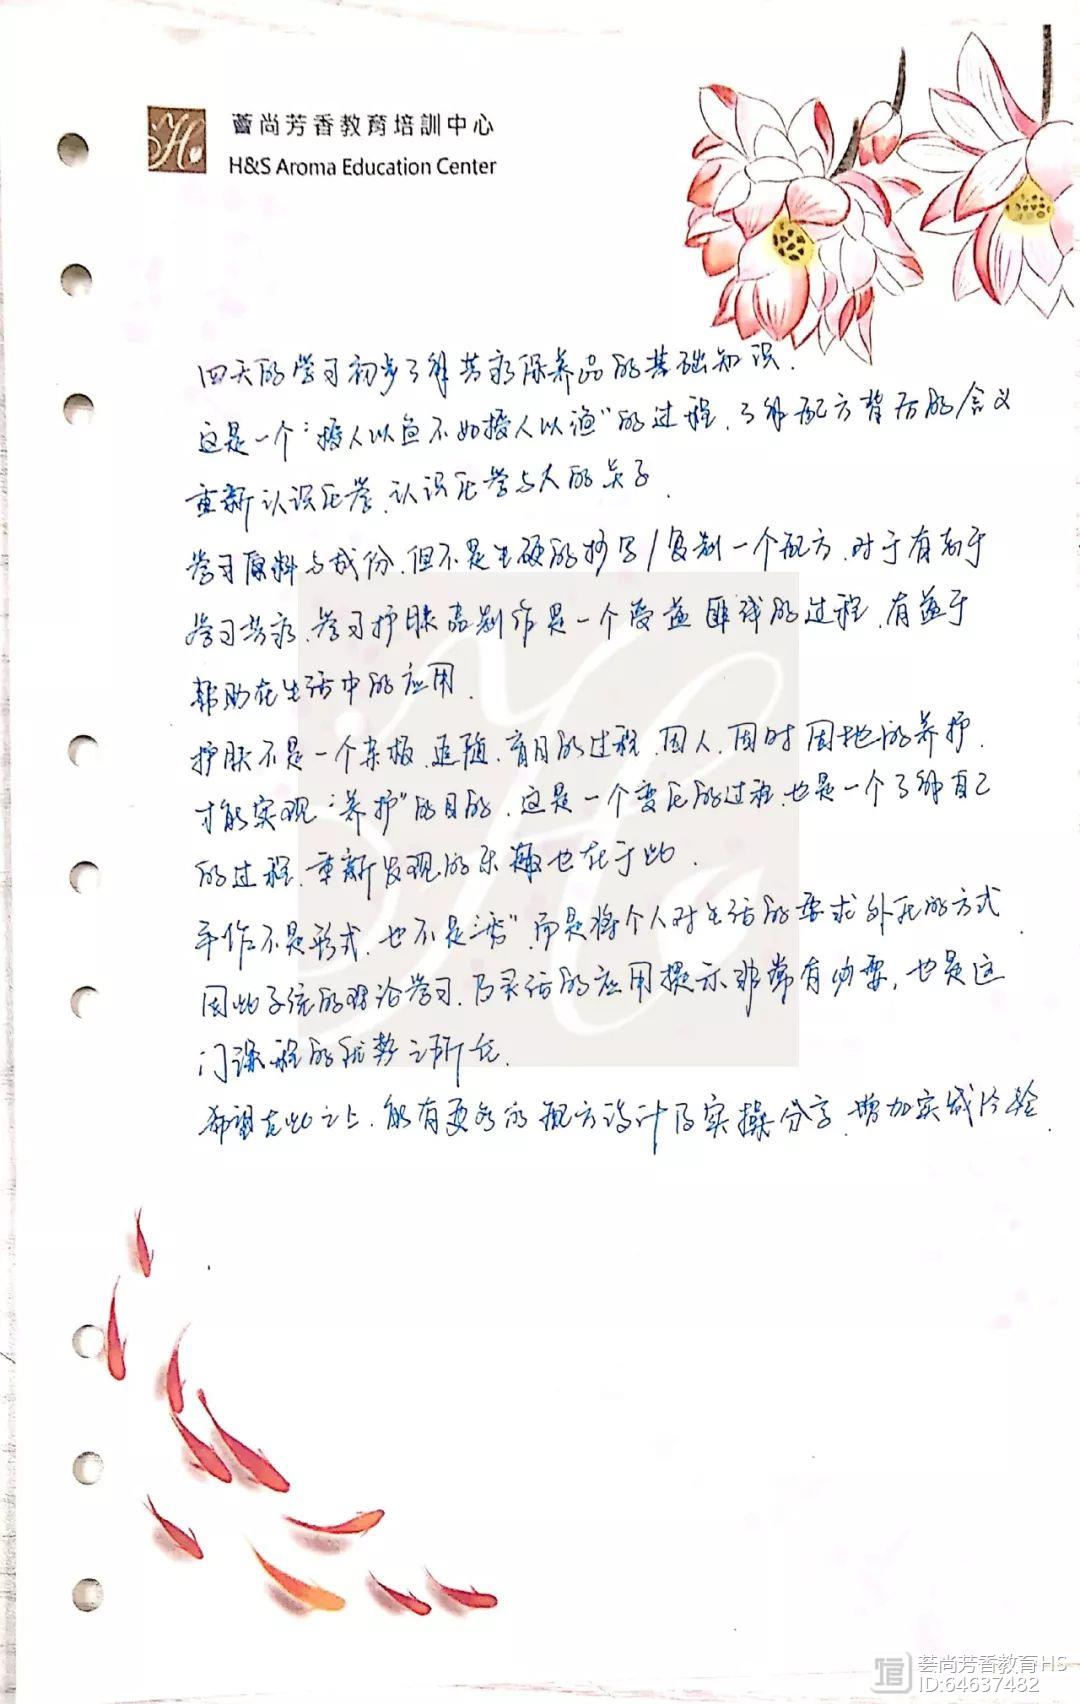 薈尚芳香教育培訓中心
H&S Aroma Education Center
四天的学习初步了解芳疗保养品的基础知识.
这是一个“授人以鱼不如授人以渔”的过程,了解配方背后的含义
重新认识化学,认识化学与人的关系.
学习原料与成份,但不是生硬的抄写/复制一个配方,对于有志于
学习芳疗,学习护肤品制作是一个受益匪浅的过程,有益于
帮助在生活中的应用.
护肤不是一个呆板、追随、盲目的过程,因人、因时因地的养护.
才能实现“养护”的目的,这是一个变化的过程,也是一个了解自己
的过程,重新发现的乐趣也在于此.
手作不是形式,也不是“秀”,而是将个人对生活的要求外化的方式
因此系统的理论学习,及灵活的应用提示非常有必要,也是这
门课程的优势之所在.
希望在此之上,能有更多的配方设计及实操分享,增加实战经验.
荟尚芳香教育HS
ID:64637482